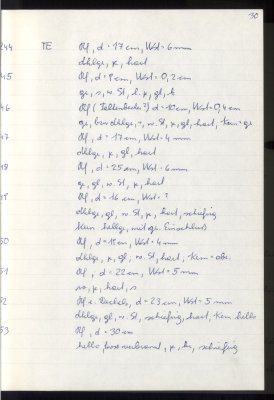 30
244 TE Rf, d = 17 cm, Wst = 6 mm
dklgr, k, hart
45 Rf, d = 9 cm, Wst = 0,2 cm
gr, s, w. St, h. k, gl, h
46 Rf (Tellerboden?) d = 10 cm, Wst = 0,4 cm
gr, bzw dklgr, w. St, k, gl, hart, Kern = gr
47 Rf, d = 17 cm, Wst = 4 mm
dklgr, k, gl, hart
48 Rf, d = 25 cm, Wst = 6 mm
gr, gl, w. St, k, hart
49 Rf, d = 16 cm, Wst = ?
dklgr, gl, w. St, k, hart, schiefrig
Kern hellgr, mit gr. Einschluss
50 Rf, d = 18 cm, Wst = 4 mm
dklgr, k, gl, w. St, hart, Kern =
51 Rf, d = 22 cm, Wst = 5 mm
k, hart, s
52 Rf e. Deckels, d = 23 cm, Wst = 5 mm
dklgr, gl, w. St, schiefrig, hart, Kern hell
53 Rf, d = 30 cm
k, schiefrig